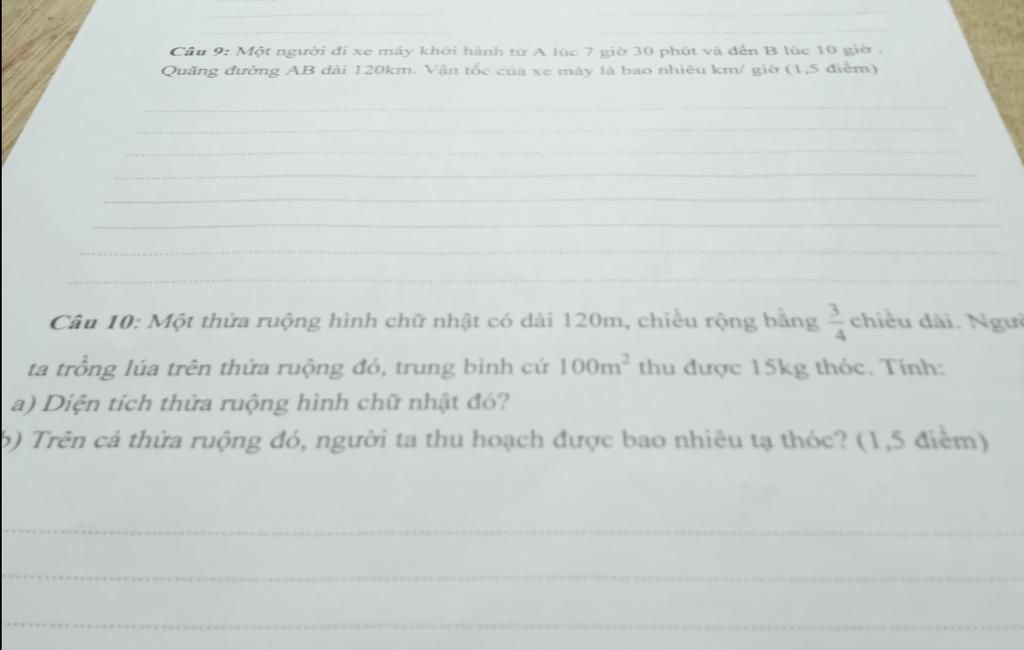 Câu 9: Một người đi xe máy khởi hành từ A lúc 7 giờ 30 phút và đến B lúc 10 giờ .
Quãng đường AB dài 120km. Vận tốc của xe máy là bao nhiêu km/ giờ (1,5 điểm)
Câu 10: Một thửa ruộng hình chữ nhật có dài 120m, chiều rộng bằng 3/4 chiều dài. Người
ta trồng lúa trên thửa ruộng đó, trung bình cứ 100m² thu được 15kg thóc. Tính:
a) Diện tích thửa ruộng hình chữ nhật đó?
b) Trên cả thửa ruộng đó, người ta thu hoạch được bao nhiêu tạ thóc? (1,5 điểm)